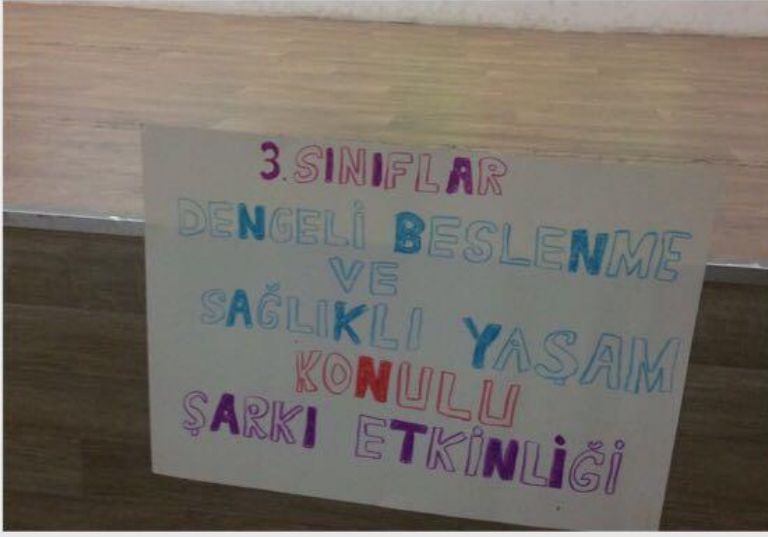 3. SINIFLAR
DENGELİ BESLENME
VE
SAĞLIKLI YAŞAM
KONULU
ŞARKI ETKİNLİĞİ